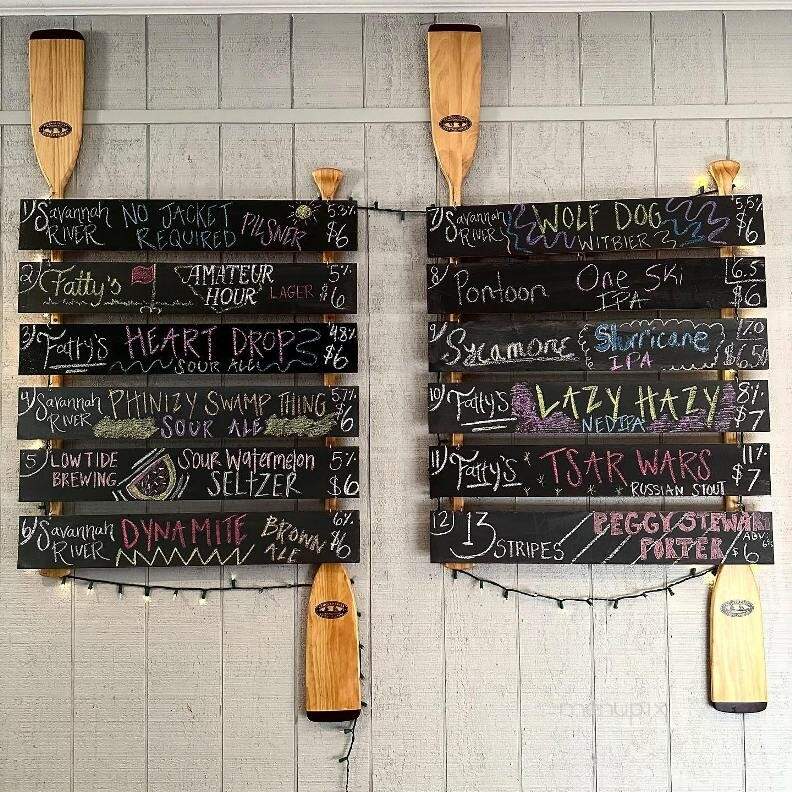 1) Savannah River NO JACKET REQUIRED PILSNER 5.3% $6
2) Fatty's AMATEUR HOUR LAGER 5% $6
3) Fatty's HEART DROP SOUR ALE 4.8% $6
4) Savannah River PHINIZY SWAMP THING SOUR ALE 5.7% $6
5) LOW TIDE BREWING SOUR Watermelon SELTZER 5% $6
6) Savannah River DYNAMITE BROWN ALE 6% $6
7) Savannah River WOLF DOG WITBIER 5.5% $6
8) Pontoon One Ski IPA 6.5 $6
9) Sycamore Slurricane IPA 7.0 $6.50
10) Fatty's LAZY HAZY NEDIPA 8% $7
11) Fatty's TSAR WARS RUSSIAN STOUT 11% $7
12) 13 STRIPES PEGGY STEWART PORTER ABV: 6% $6